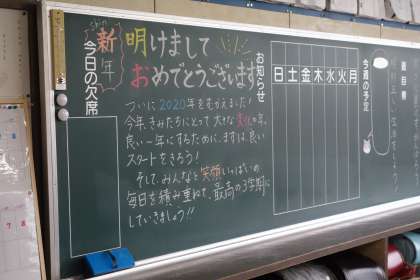 新年
明けまして
おめでとうございます
ついに2020年をむかえました!
今年、きみたちにとって大きな変化の年。
良い一年にするために、まずは良い
スタートをきろう!
そして、みんなと笑顔いっぱいの
毎日を積み重ねて、最高の3学期に
していきましょう!!
今日の欠席
お知らせ
日土金木水火月
今週の予定
週目標